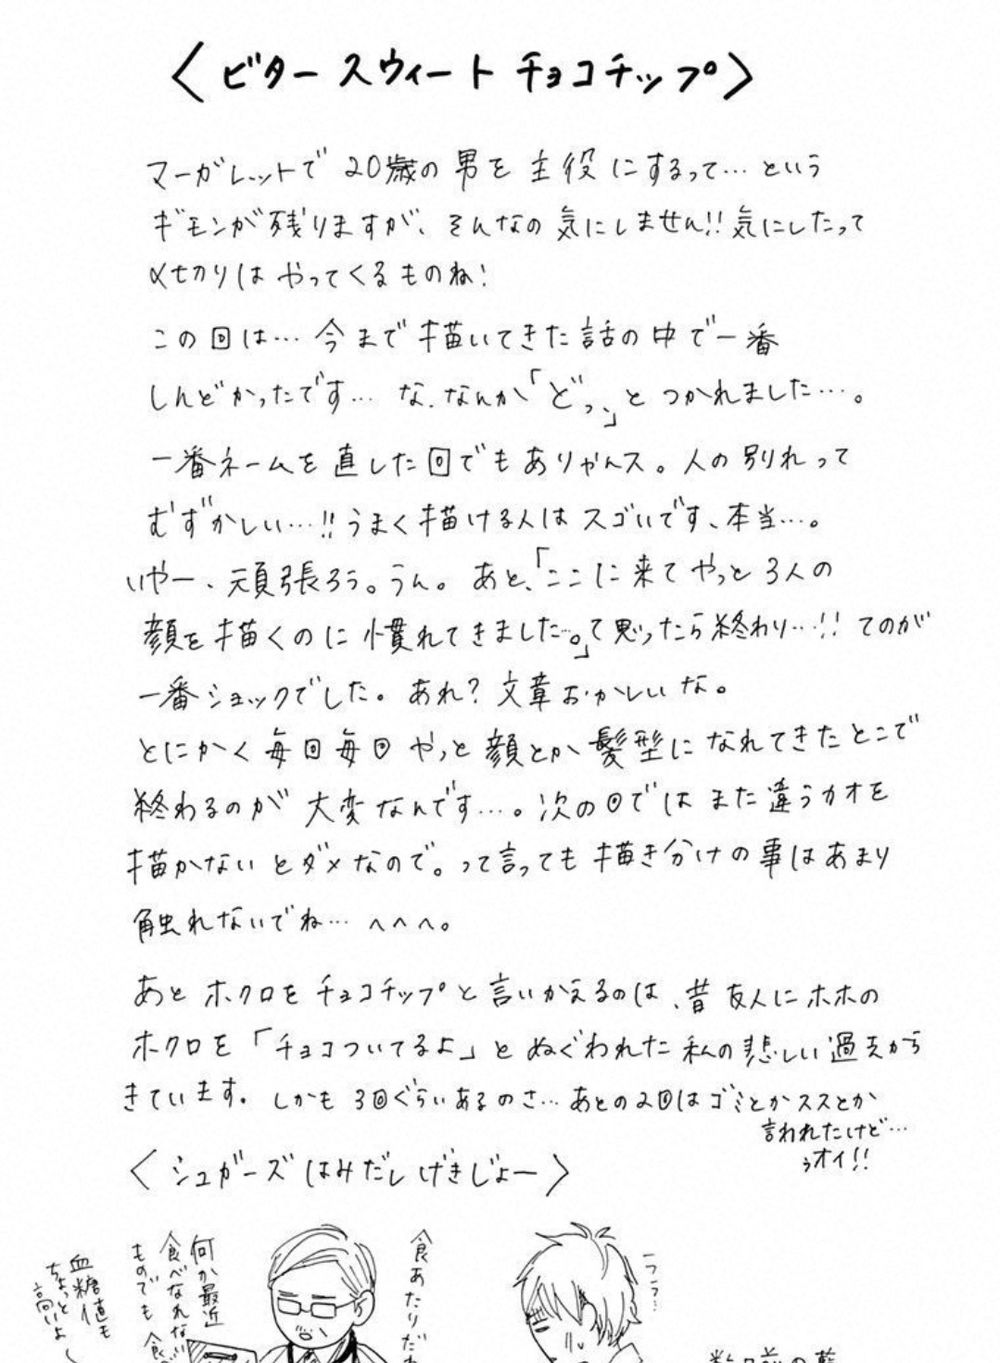 〈ビタースウィートチョコチップ〉
マーガレットで20歳の男を主役にするって…という
ギモンが残りますが、そんなの気にしません!!気にしたって
〆切りはやってくるものね!
この回は…今まで描いてきた話の中で一番
しんどかったです…な、なんか「どっ、」とつかれました…。
一番ネームを直した回でもありやんス。人の別れって
むずかしい…!!うまく描ける人はスゴいです、本当…。
いやー、頑張ろう。うん。あと、「ここに来てやっと3人の
顔を描くのに慣れてきました…。」て思ったら終わり…!!てのが
一番ショックでした。あれ?文章おかしいな。
とにかく毎回毎回やっと顔とか髪型になれてきたとこで
終わるのが大変なんです…。次の回ではまた違うカオを
描かないとダメなので。って言っても描き分けの事はあまり
触れないでね…へへへ。
あとホクロをチョコチップと言いかえるのは、昔友人にホホの
ホクロを「チョコついてるよ」とぬぐわれた私の悲しい過去から
きています。しかも3回ぐらいあるのさ…あとの2回はゴミとかススとか
言われたけど…
ぅオイ!!
〈シュガーズはみだしげきじょー〉
フフフ…
食あたりだ
何か最近
食べなれない
ものでも食
血糖値も
ちょっと
高いよ